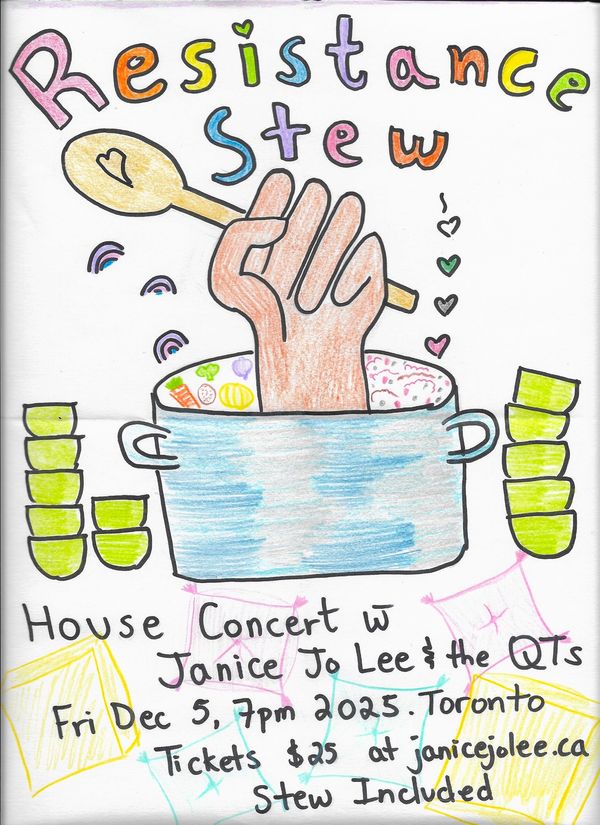 Resistance
Stew
House Concert w̄
Janice Jo Lee & the QTs
Fri Dec 5, 7pm 2025. Toronto
Tickets $25 at janicejolee.ca
Stew Included